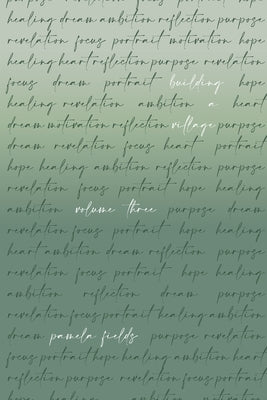 healing dream ambition reflection purpose
revelation focus portrait motivation hope
healing heart reflection purpose revelation
focus dream portrait building hope
healing revelation ambition a heart
dream motivation reflection village purpose
dream revelation focus heart portrait
hope healing ambition reflection purpose
revelation focus portrait hope healing
ambition volume three purpose dream
revelation focus portrait hope healing
heart ambition dream reflection purpose
revelation focus portrait hope healing
ambition reflection dream purpose
revelation focus portrait healing ambition
dream pamela fields purpose revelation
focus portrait hope healing ambition heart
reflection purpose revelation focus dream
hope healing ambition motivation